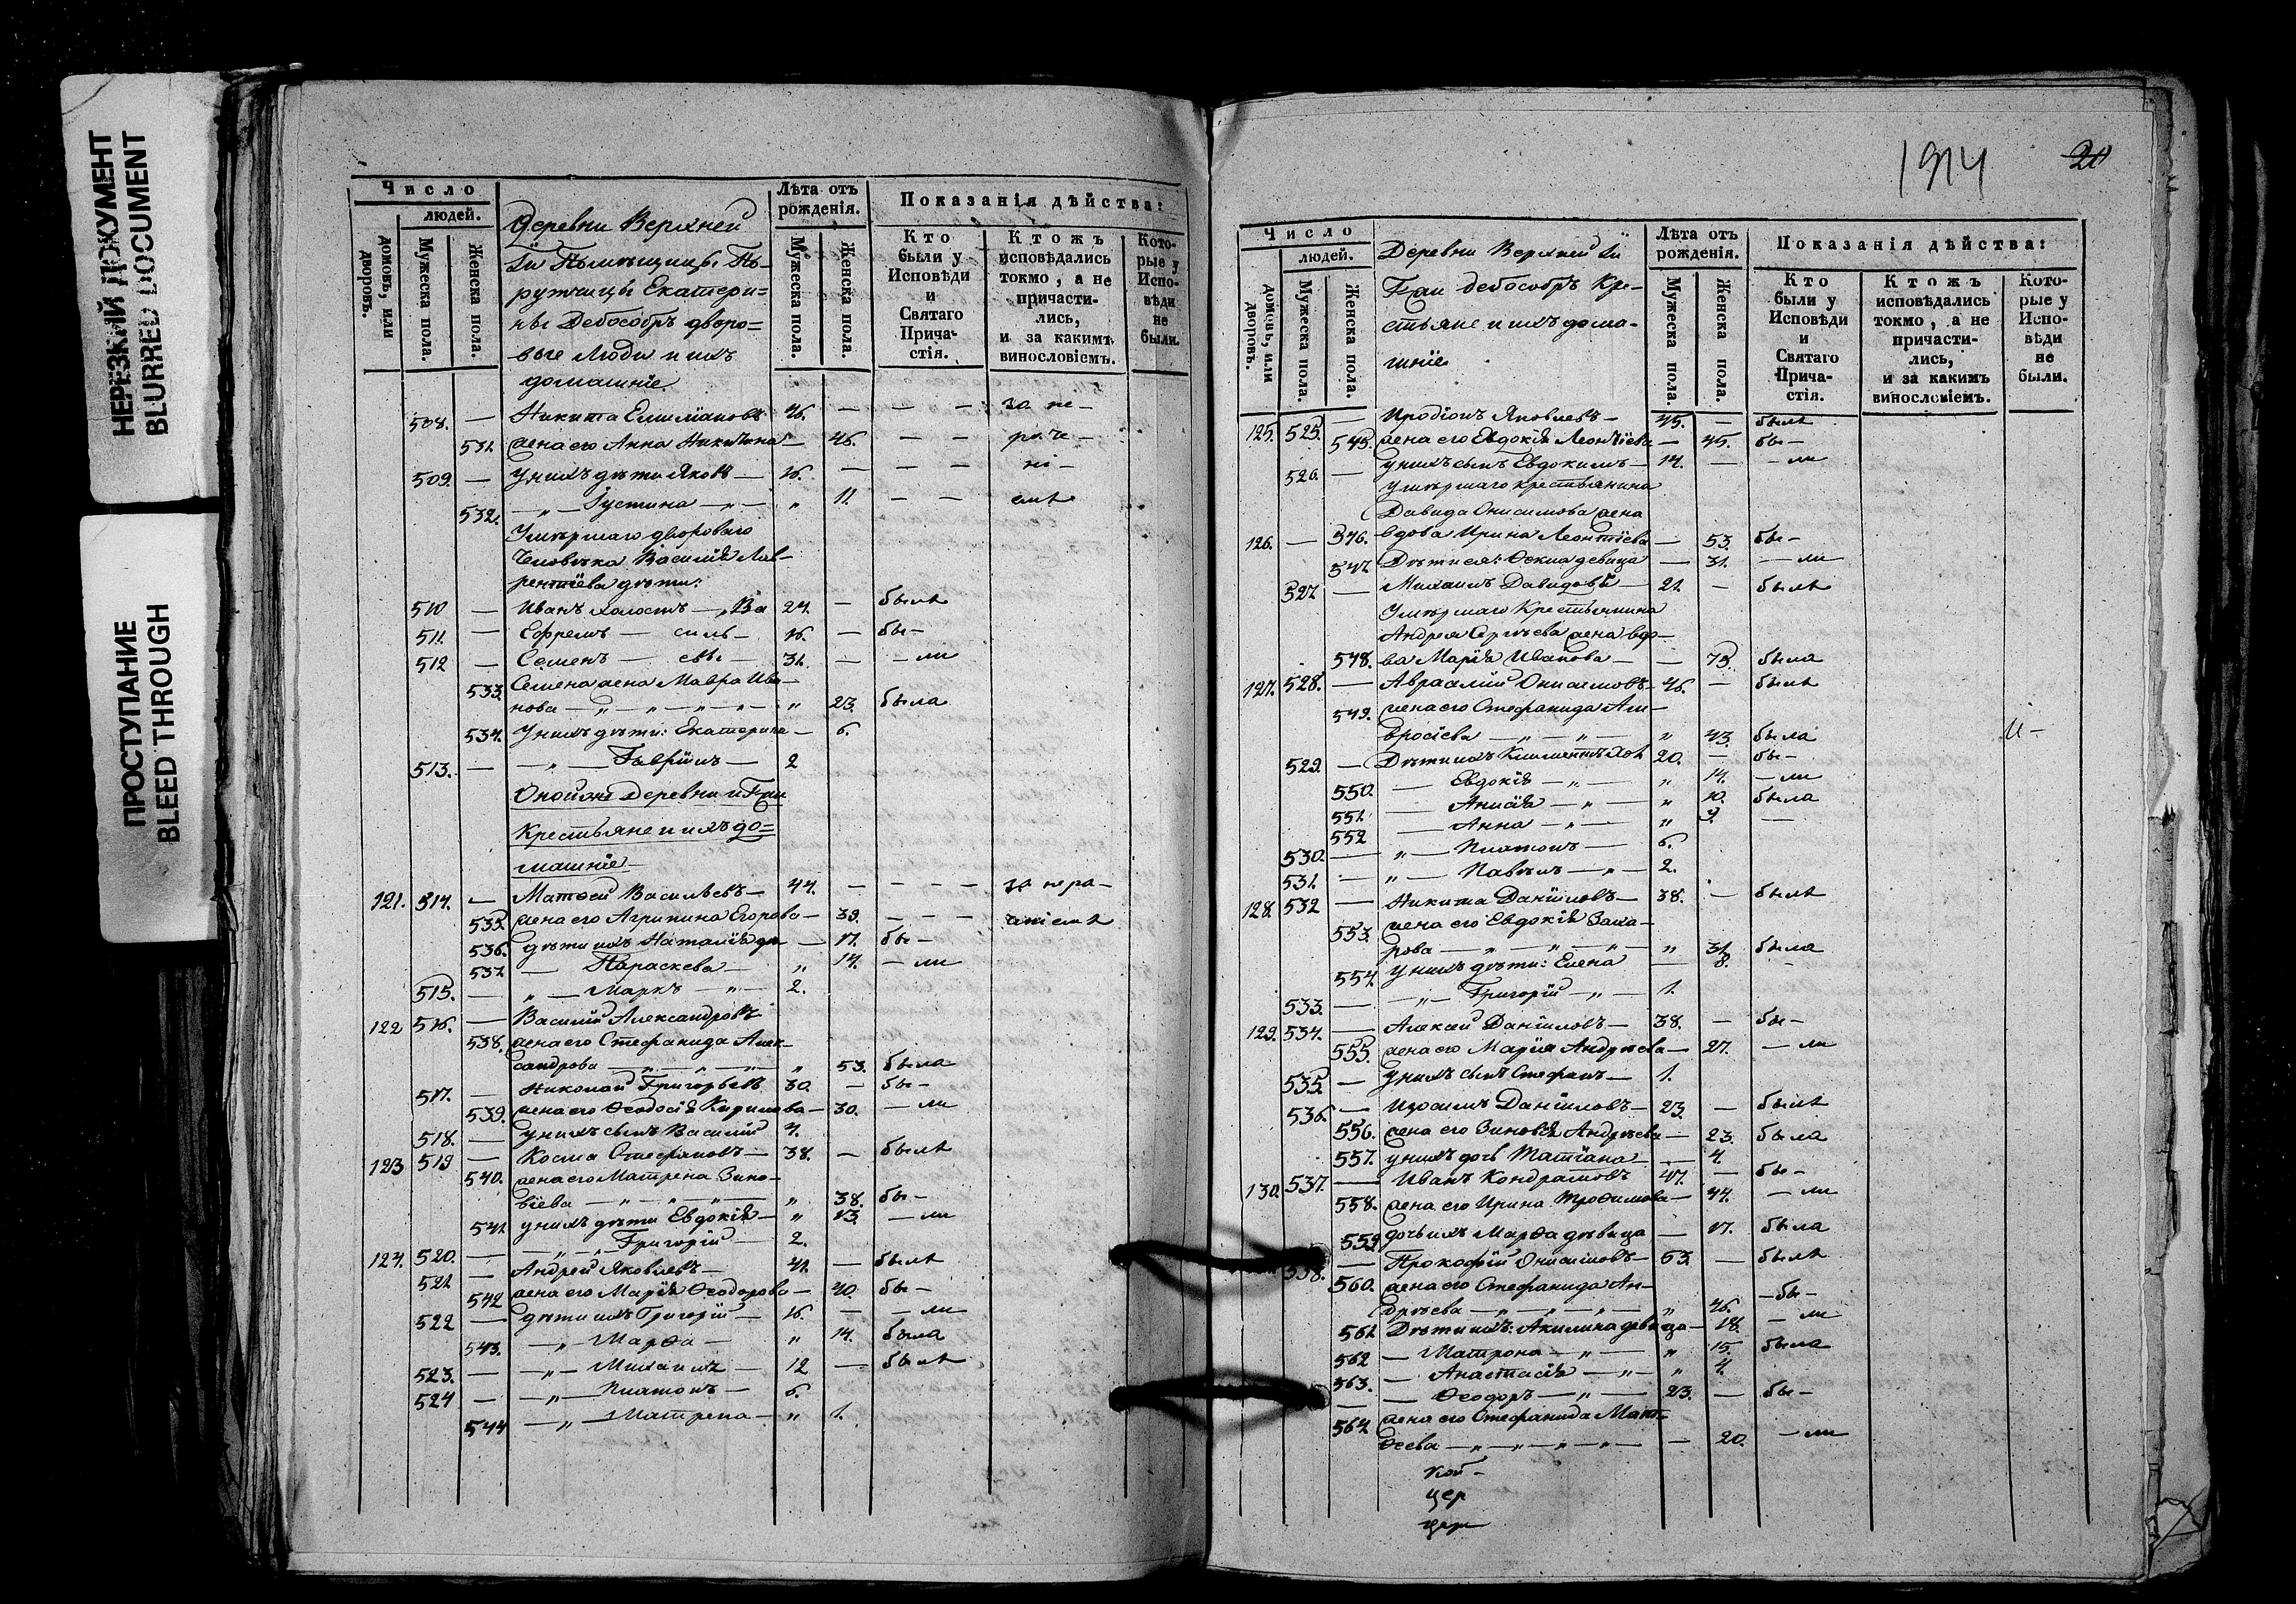 НЕРЕЗКИЙ ДОКУМЕНТ
BLURRED DOCUMENT
ПРОСТУПАНИЕ
BLEED THROUGH
Число
людей.
домовъ, или дворовъ.
Мужеска пола.
Женска пола.
Деревни Верхней
помѣщицы По-
ручицы Екатери=
ны Дебособръ дворо=
вые люди и ихъ
домашніе
Лѣта отъ рожденія.
Мужеска пола.
Женска пола.
Показанія дѣйства:
Кто были у Исповѣди и Святаго Прича-стія.
Ктожъ исповѣдались токмо, а не причасти-лись, и за какимъ винословіемъ.
Кото-рые у Испо-вѣди не были.
508. — Никита Емиліановъ 46. — — — за не-
531. жена его Анна Никитина — 46. — — раче-
509. — у нихъ дѣти Яковъ — 16. — — — ні-
532. — „ — Іустина — „ — „ 11. — — емъ
Умершаго двороваго
человѣка Василія Лав-
рентіева дѣти:
510 — Иванъ холостъ — Ва 24. — былъ
511. — Ефремъ — силь- 16. — бы-
512 — Семенъ — евы — 31. — — ли
533. Семена жена Мавра Ива-
нова — „ — „ — „ — „ — „ 23. была
534. у нихъ дѣти: Екатерина — 6.
513. — „ — Гавріилъ — 2
Оной же деревни и Гжи
крестьяне и ихъ до=
машніе
121. 514. — Матѳей Васильевъ — 44. — — — — за нера-
535. жена его Агрипина Егорова — 39. — — — чніемъ
536. дѣти ихъ Наталія дѣ — 17. бы-
537. — Параскева — „ 14. — ли
515. — „ — Маркъ — „ — 2.
122 516. — Василій Александровъ
538. жена его Стефанида Алек-
сандрова — „ — „ — „ — „ 53. была
517. — Николай Григорьевъ 30. — бы-
539. жена его Ѳеодосія Кирилова — 30. — ли
518. — у нихъ сынъ Василій 4.
123 519 — Косма Стефановъ — 38. — былъ
540. жена его Матрена Зино-
віева — „ — „ — „ — „ 38. бы-
541. у нихъ дѣти Евдокія — „ 13. — ли
520. — „ — Григорій — 2.
124. 521. — Андрей Яковлевъ — 41. — былъ
542 жена его Марія Ѳеодорова — 40. бы-
522 — дѣти ихъ Григорій — 16. — — ли
543. — „ — Марѳа — „ 14. была
523. — „ — Михаилъ — 12 — былъ
524 — „ — Платонъ — 6.
544 — „ — Матрена — „ 1.
1914
20
Число
людей.
домовъ, или дворовъ.
Мужеска пола.
Женска пола.
Деревни Верхней
Гжи дебособръ Кре-
стьяне и ихъ дома-
шніе
Лѣта отъ рожденія.
Мужеска пола.
Женска пола.
Показанія дѣйства:
Кто были у Исповѣди и Святаго Прича-стія.
Ктожъ исповѣдались токмо, а не причасти-лись, и за какимъ винословіемъ.
Кото-рые у Испо-вѣди не были.
125. 525. — Иродіонъ Яковлевъ — 45. — былъ
545. жена его Евдокія Леонтіева — 45. бы-
526. — у нихъ сынъ Евдокимъ — 14. — — ли
Умершаго крестьянина
Давида Онисимова жена
126. — 546. вдова Ирина Леонтіева — 53. бы-
547. Дѣти ея: Ѳекла девица — 31. — ли
527 — Михаилъ Давидовъ — 21. — былъ
Умершаго Крестьянина
Андрея Сергѣева жена вдо-
548. ва Марія Иванова — — 73. была
127. 528. — Авраамій Онисимовъ — 46. — былъ
549. жена его Стефанида Ам-
вросіева — „ — „ — „ 43. была
529. — Дѣти ихъ Климентъ хол 20. — бы-
550. — Евдокія — „ — „ 14. — ли
551. — Анисія — „ — „ 10. была
552 — Анна — „ — „ 9. —
530. — „ — Платонъ — 6.
531. — „ — Павелъ — „ 2.
128. 532 — Никита Даніиловъ — 38. — былъ
553. жена его Евдокія Заха-
рова — „ — „ — „ — „ 31. была
554. у нихъ дѣти: Елена — 8. -
533. — „ — Григорій — „ — 1.
129. 534. — Алексей Даніиловъ — 38. — бы-
555. жена его Марія Андреева — 27. — ли
535. — у нихъ сынъ Стефанъ — 1.
536. — Даніиловъ — 23. — былъ
556. жена его Зиновія Андреева — 23. была
557. у нихъ дочь Татіана — 4.
130. 537. — Иванъ Кондратовъ 47. — бы-
558. жена его Ирина Трофимова — 44. — ли
559. дочь ихъ Марѳа дѣвица — 17. была
538. — Прокофій Онисимовъ — 53. — былъ
560. жена его Стефанида Ан-
дреева — „ — „ — „ — „ 46. — бы-
561. Дѣти ихъ: Акилина девица — 18. — ли
562 — Матрона — „ — „ 15. была
563. — Анастасія — „ — „ 4.
— — Ѳеодоръ — „ — 23. — бы-
564 жена его Стефанида Мат-
ѳеева — „ — „ — „ — „ — — 20. — ли